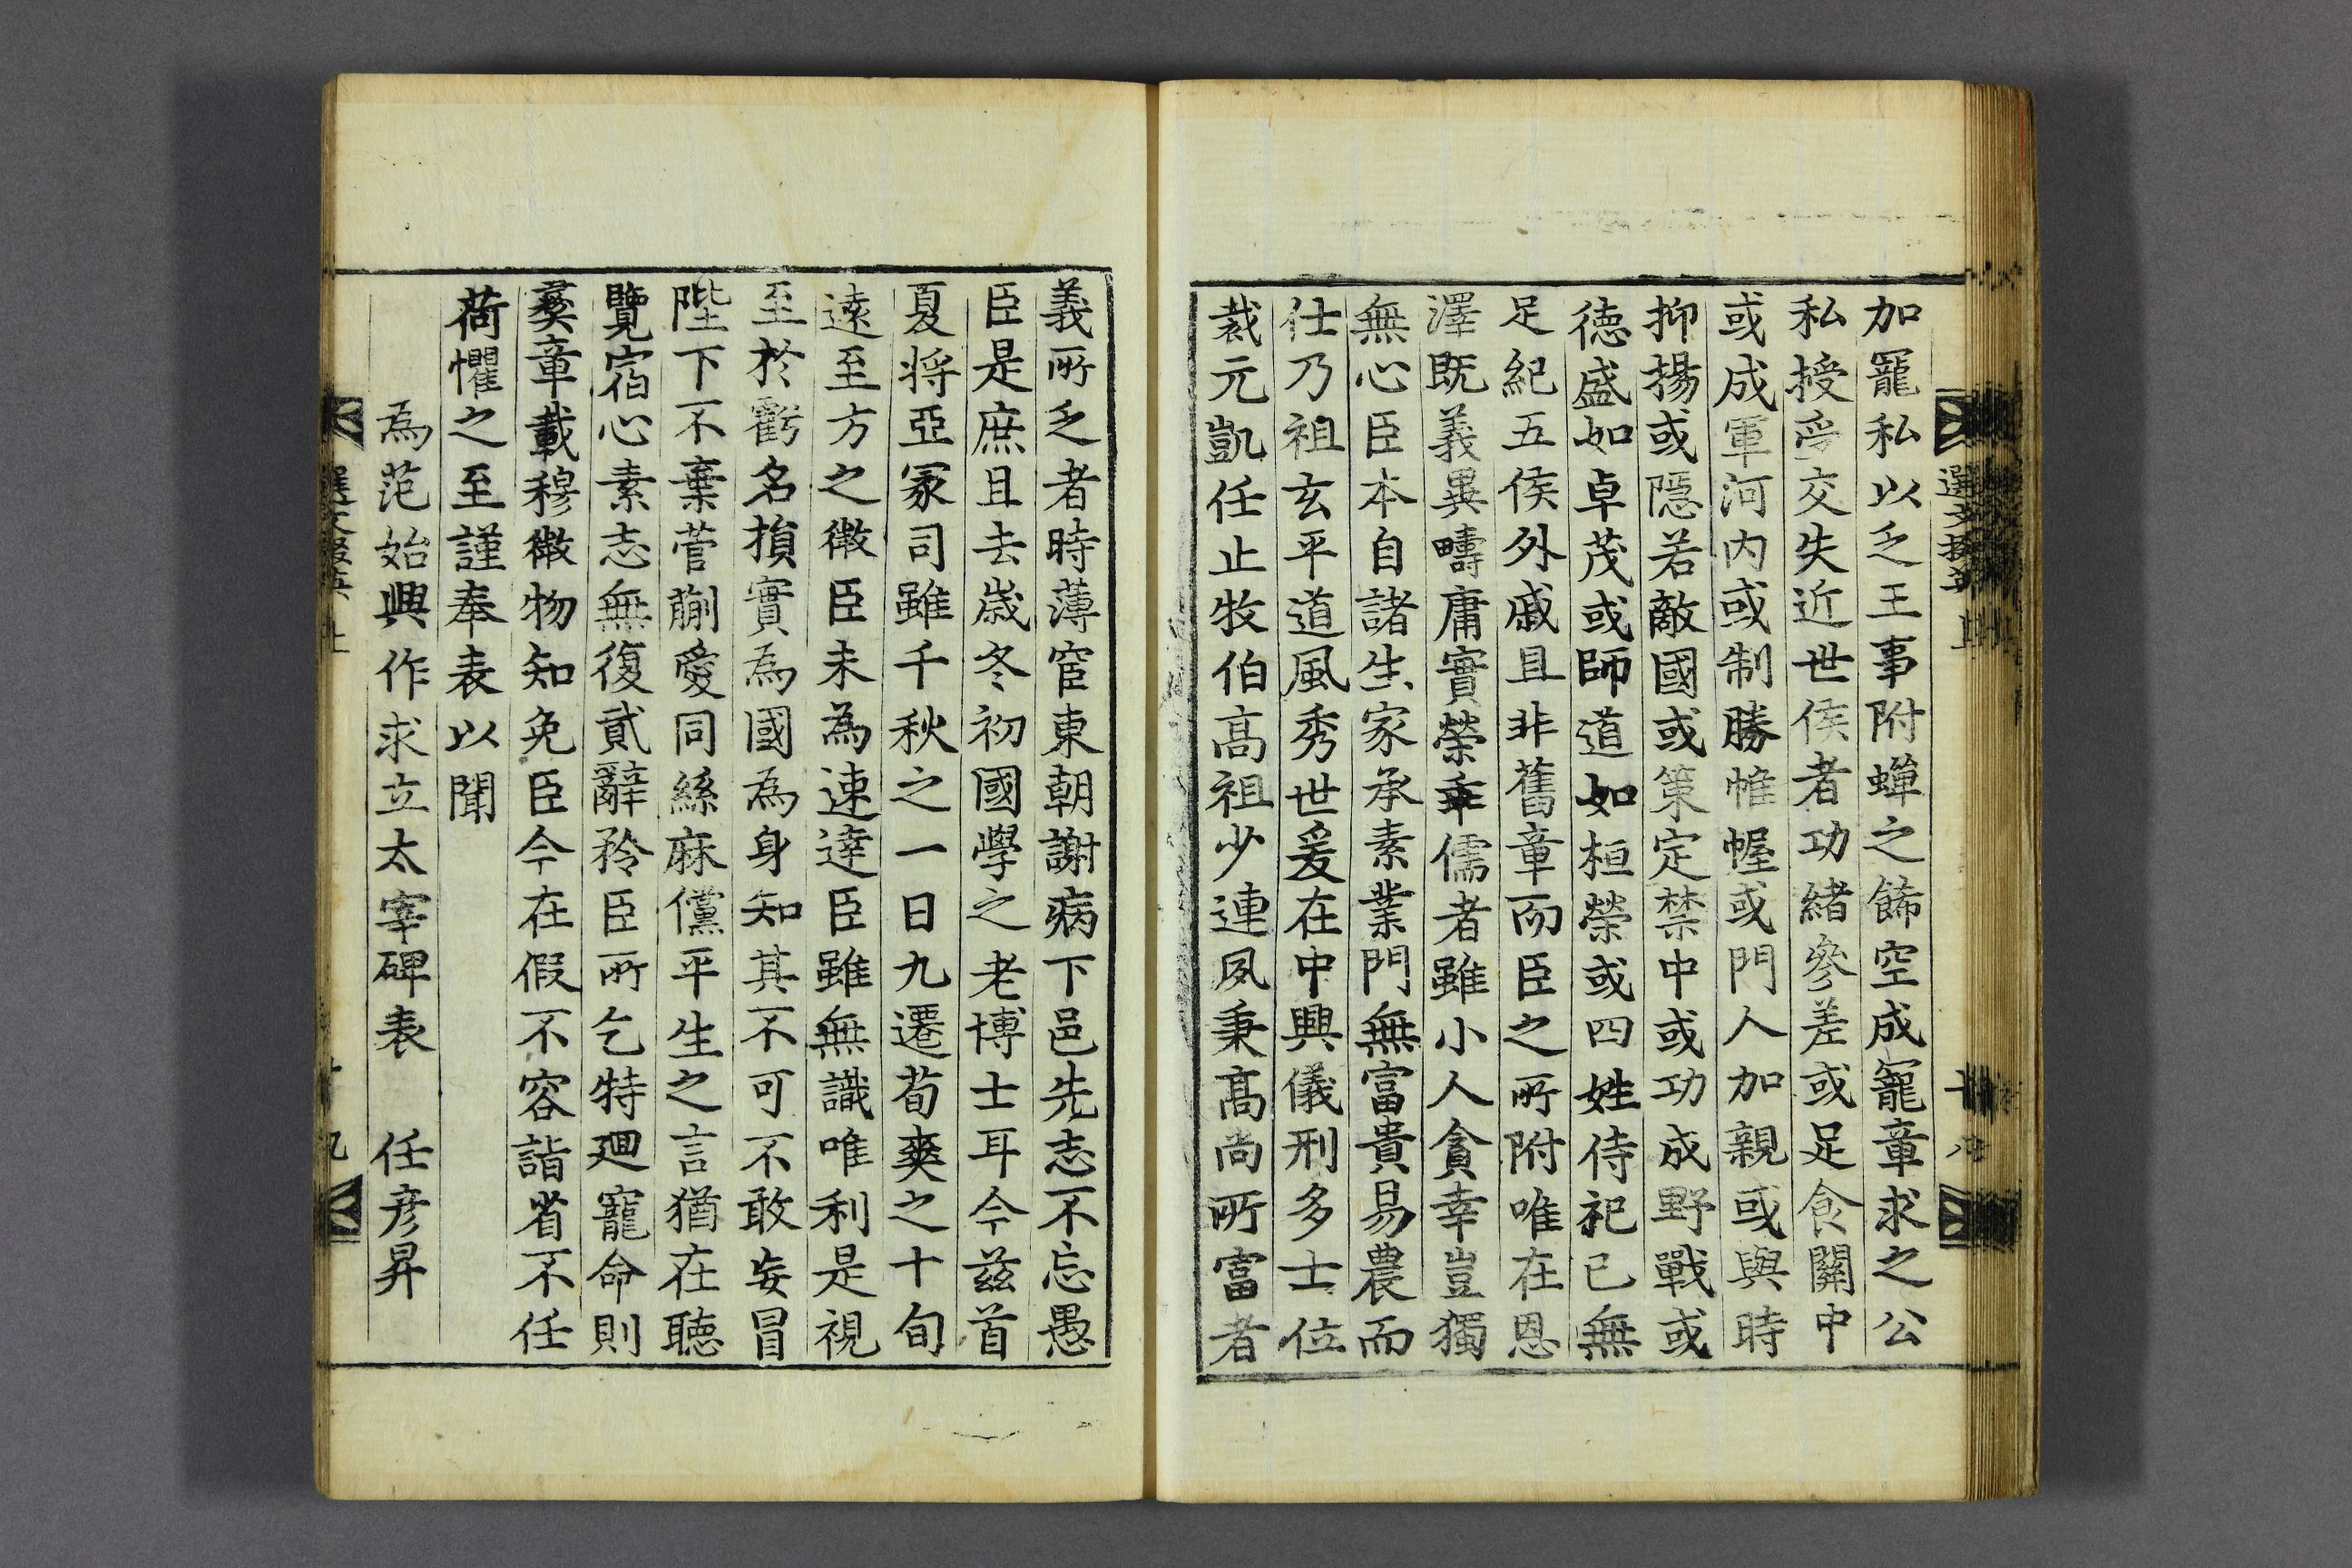 加寵私以乏王事附蟬之飾空成寵章求之公
私授受交失近世侯者功緖參差或足食關中
或成軍河内或制勝帷幄或門人加親或與時
抑揚或隱若敵國或策定禁中或功成野戰或
德盛如卓茂或師道如桓榮或四姓侍祀已無
足紀五侯外戚且非舊章而臣之所附唯在恩
澤既義異疇庸實榮乖儒者雖小人貪幸豈獨
無心臣本自諸生家承素業門無富貴易農而
仕乃祖玄平道風秀世爰在中興儀刑多士位
裁元凱任止牧伯高祖少連夙秉高尚所富者
義所乏者時薄宦東朝謝病下邑先志不忘愚
臣是庶且去歲冬初國學之老博士耳今兹首
夏將亞冢司雖千秋之一日九遷荀爽之十旬
遠至方之微臣未爲速達臣雖無識唯利是視
至於虧名損實爲國爲身知其不可不敢妄冒
陛下不棄菅蒯愛同絲麻儻平生之言猶在聽
覽宿心素志無復貳辭矜臣所乞特廻寵命則
彝章載穆微物知免臣今在假不容詣省不任
荷懼之至謹奉表以聞
爲范始興作求立太宰碑表　任彦昇
選文掇英 上
十九